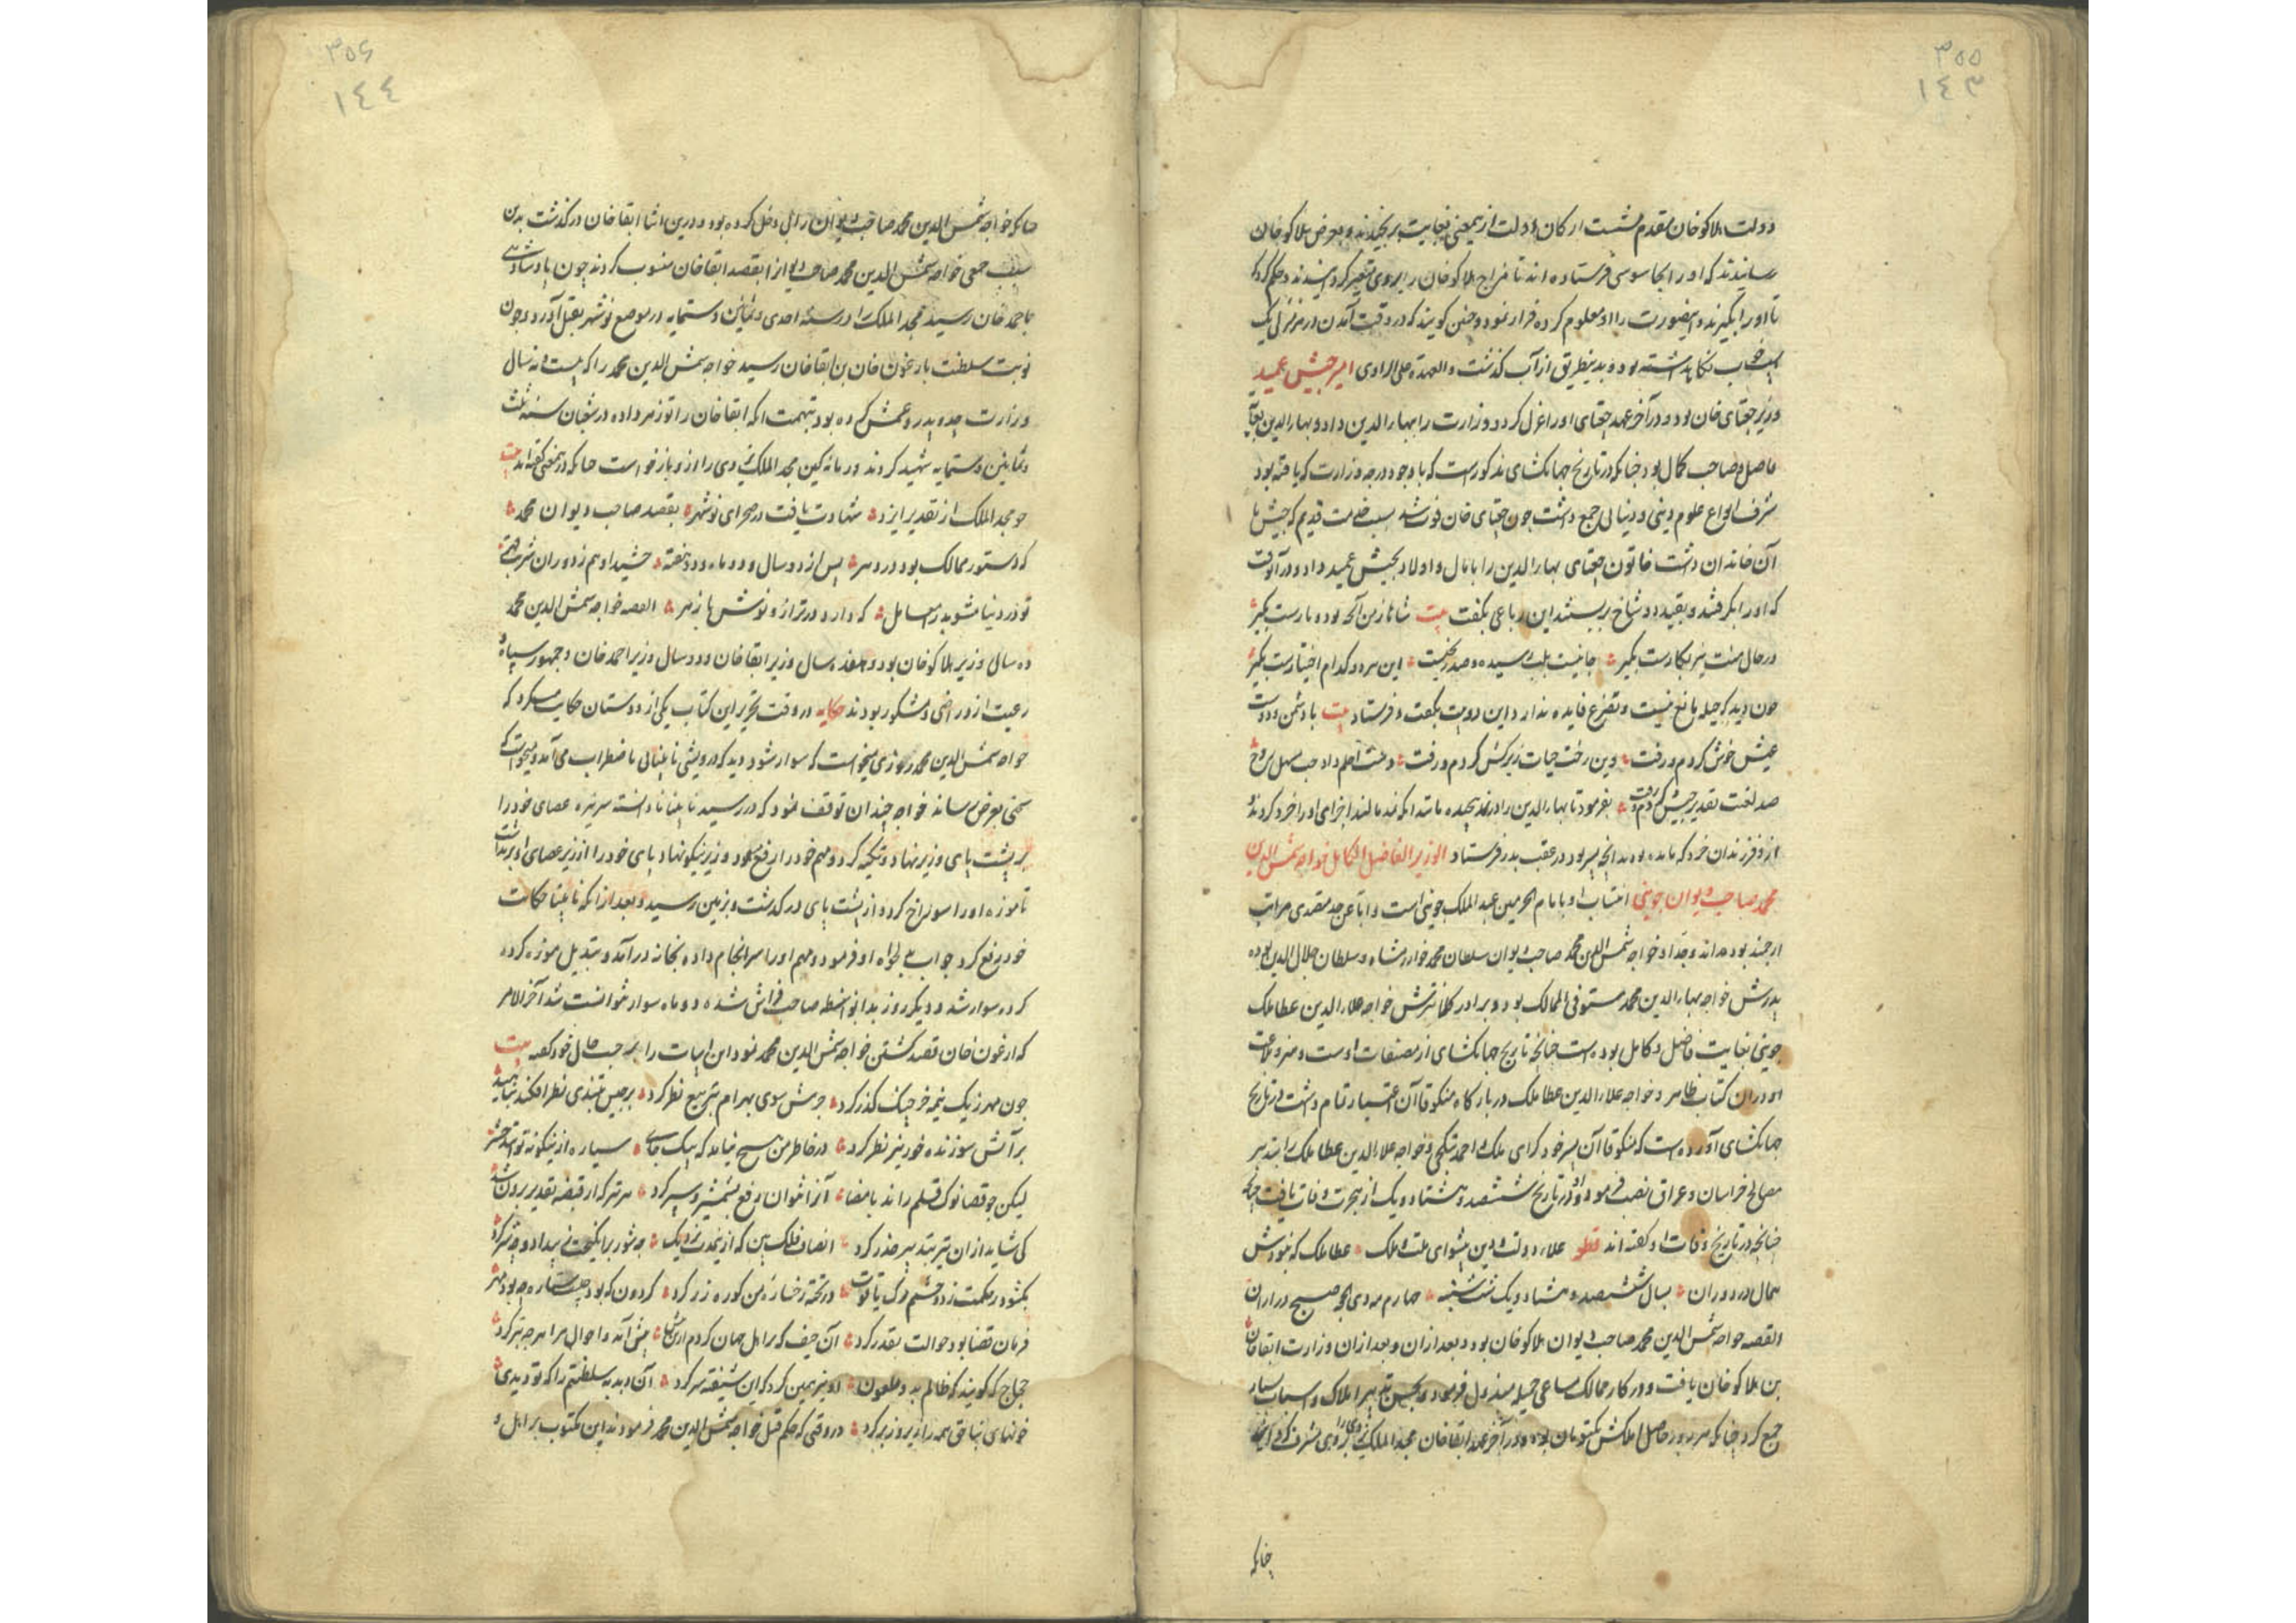 ۳۵۵
۱٤۳
دولت هلاکو خان مقدم نشست ارکان دولت ازیمعنی بغایت برنجیدند و بعرض هلاکو خان
رسانیدند که او را بجاسوسی فرستاده اند تا مزاج هلاکو خان را بروی متغیر کردانیدند و حکم کرد که
تا او را بگیرند و اینصورت را او معلوم کرده فرار نمود و چنین کویند که در وقت آمدن در هر منزلی یک
اسپ نگاه داشته بود و بدینطریق از آب گذشت والعهدة علی الراوی امیر حبش عمید
وزیر جغتای خان بود و در آخر عهد جغتای او را عزل کرد و وزارت را ببهاء الدین داد و بهاء الدین بغایت
فاضل و صاحب کمال بود چنانکه در تاریخ جهانکشای مذکورست که با وجود درجه وزارت که یافته بود
شرف انواع علوم دینی و دنیائی جمع داشت چون جغتای خان فوت شد بسبب خدمت قدیم که حبش با
آن خاندان داشت خاتون جغتای بهاء الدین را با مال و اولاد بحبش عمید داد و در آنوقت
که او را بگرفتند و بقید دو شاخ بربستند این رباعی بگفت بیت شاها ز من آنچه بود و بارست بگیر
در حال منت نیز بکارست بگیر جانیست بلب رسیده و صد رنجیست این هر دو کدام اختیارست بگیر
چون دید که حیله نافع نیست و تضرع فایده ندارد این دو بیت بکفت و فرستاد بیت با دشمن و دوست
عیش خوش کردم و رفت وین رخت حیات زیرکش کردم و رفت
بفرمود تا بهاء الدین را در نمد پیچیده مانند آنکه نمد مالند اجزای او را خرد کردند و
از فرزندان خرد که مانده بودند آنچه پسر بود در عقب پدر فرستاد الوزیر الفاضل الکامل خواجه شمس الدین
محمد صاحب دیوان جوینی انتساب او بامام الحرمین عبد الملک جوینی است و ابا عن جد متصدی مراتب
ارجمند بوده اند و جد او خواجه شمس الدین محمد صاحب دیوان سلطان محمد خوارزمشاه و سلطان جلال الدین بوده
پدرش خواجه بهاء الدین محمد مستوفی الممالک بود و برادر کلانترش خواجه علاء الدین عطا ملک
جوینی بغایت فاضل و کامل بوده است چنانچه تاریخ جهانکشای از مصنفات اوست و هنر و بلاغت
او در آن کتاب ظاهر و خواجه علاء الدین عطا ملک در بارکاه منکو قاآن اعتبار تمام داشت در تاریخ
جهانکشای آورده است که منکو قاآن پسر خود کرای ملک و احمد بیتکچی و خواجه علاء الدین عطا ملک را بتدبیر
مصالح خراسان و عراق نصب فرمود و او در تاریخ ششصد و هشتاد و یک از هجرت وفات یافت
چنانچه در تاریخ وفات او کفته اند قطعه علاء دولت و دین پیشوای ملت و ملک عطا ملک که نبودش
همال در دوران بسال ششصد و هشتاد و یک شب شنبه چهارم مه ذی الحجه صبح در اران
القصه خواجه شمس الدین محمد صاحب دیوان هلاکو خان بود و بعد از آن و بعد از آن وزارت ابقا خان
بن هلاکو خان یافت و در کار ممالک مساعی جمیله مبذول فرمود و بحسن تدبیر املاک و اسباب بسیار
جمع کرد چنانکه هر روز حاصل املاکش یکتومان بود و در آخر عهد ابقا خان مجد الملک یزدی را بروی مشرف کردانید
چنانکه
۳۵۶
۱٤٤
چنانکه خواجه شمس الدین محمد صاحب دیوان را بی دخل کرده بود و درین اثنا ابقا خان درگذشت بدین
سبب جمعی خواجه شمس الدین محمد صاحب دیوان را بقصد ابقا خان منسوب کردند چون پادشاهی
باحمد خان رسید مجد الملک را در سنه احدی و ثمانین و ستمایه در موضع نوشهر بقتل آورد و چون
نوبت سلطنت بارغون خان بن ابقا خان رسید خواجه شمس الدین محمد را که بیست و نه سال
وزارت جد و پدر و عمش کرده بود بتهمت آنکه ابقا خان را تو زهر داده در شعبان سنه ثلث
و ثمانین و ستمایه شهید کردند و زمانه کین مجد الملک یزدی را از و باز خواست چنانکه درینمعنی کفته اند بیت
چو مجد الملک از تقدیر ایزد شهادت یافت در صحرای نوشهر بقصد صاحب دیوان محمد
که دستور ممالک بود در دهر پس از دو سال و دو ماه و دو هفته چشید او هم ز دوران شربت قهر
تو در دنیا مشو بد را معامل که دارد در ترازو نوش با زهر القصه خواجه شمس الدین محمد
ده سال وزیر هلاکو خان بود و هفده سال وزیر ابقا خان و دو سال وزیر احمد خان و جمهور سپاه و
رعیت از و راضی و شکور بودند حکایه در وقت تحریر این کتاب یکی از دوستان حکایت میکرد که
خواجه شمس الدین محمد روزی میخواست که سوار شود دید که درویشی نابینائی باضطراب می آمد و میخواست که
سخنی بعرض رساند خواجه چندان توقف نمود که در رسید نابینا نا دانسته سر نیزه عصای خود را
بر پشت پای وزیر نهاد و تکیه کرد و مهم خود را رفع نمود وزیر نیکو نهاد پای خود را از زیر عصای او برنداشت
تا موزه او را سوراخ کرده از پشت پای درگذشت و بزمین رسید و بعد از آنکه نابینا حکایت
خود رفع کرد جواب بدلخواه او فرمود و مهم او را سرانجام داده بخانه درآمد و تبدیل موزه کرده
کرده سوار شد و دیکر روز بدانواسطه صاحب فراش شده دو ماه سوار نتوانست شد آخر الامر
که ارغون خان قصد کشتن خواجه شمس الدین محمد نمود این ابیات را بر حسب حال خود کفته بیت
چون مهر ز یک نیمه خرچنک گذر کرد جرمش سوی بهرام بتربیع نظر کرد برجیس بتندی نظر افکند بناهید
بر آتش سوزنده خونریز نظر کرد در خاطر من هیچ نیامد که بیک جای سیاره ازینکونه تواند حشر
لیکن چو قضا نوک قلم راند بامضا آنرا نتوان دفع بشمشیر و سپر کرد هر تیر که از قبضه تقدیر برون شد
کی شاید از آن تیر بتدبیر حذر کرد انصاف فلک بین که ازینمدت نزدیک چه شور برانگیخت ز بیداد و چه شر کرد
بر تخته رخساره من کوره زر کرد گردون که بود چیست ستاره چه بود مهر
فرمان قضا بود حوالت بقدر کرد آن حیف که بر اهل جهان کردم ازین پیش پیش آمد و احوال مرا هر چه بتر کرد
حجاج که کویند که ظالم بد و ملعون او نیز همین کرد که این شیفته سر کرد آن دبدبه سلطنتم را که تو دیدی
خونهای بناحق همه را زیر و زبر کرد در وقتی که حکم قتل خواجه شمس الدین محمد فرمودند این مکتوب بر اهل و